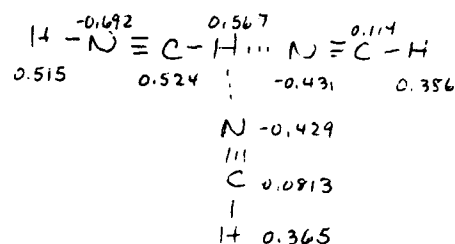 -0.692 0.567 0.114
H - N ≡ C - H ... N ≡ C - H
0.515 0.524 -0.431 0.386
N -0.429
C 0.0813
H 0.365